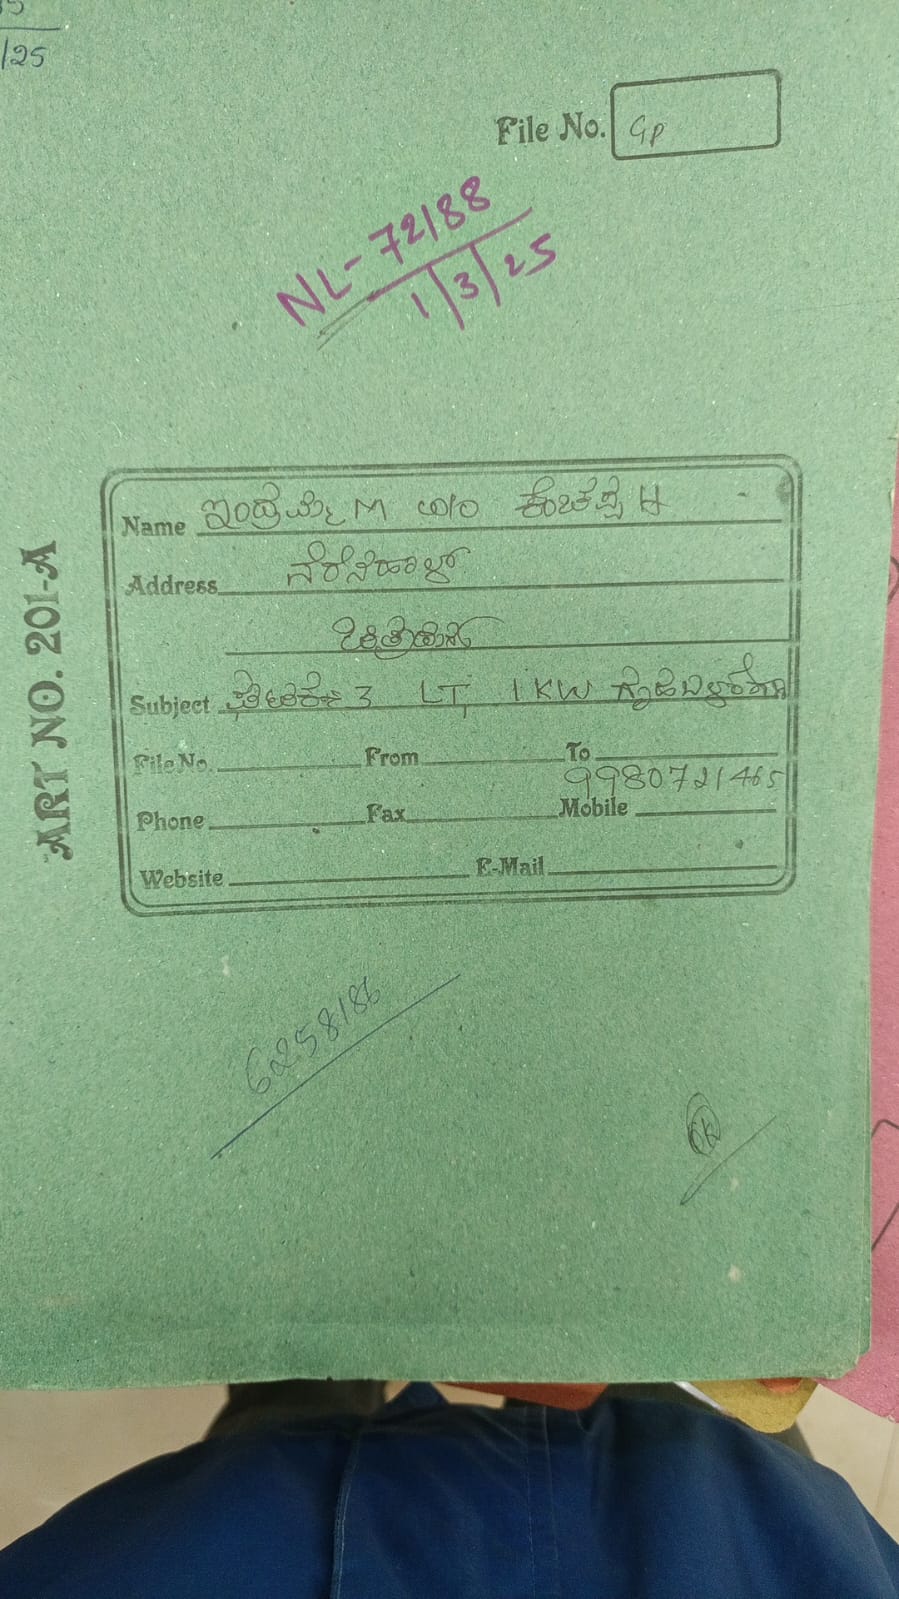 /25
File No. GP
NL-72188
1/3/25
ART NO. 201-A
Name ಇಂದ್ರಮ್ಮ M W/O ಕೆಂಚಪ್ಪ H
Address ನೆರೆನಹಾಳ್
Subject 3 LT, 1 KW
File No. From To
9980721465
Phone Fax Mobile
Website E-Mail
6258186
OK